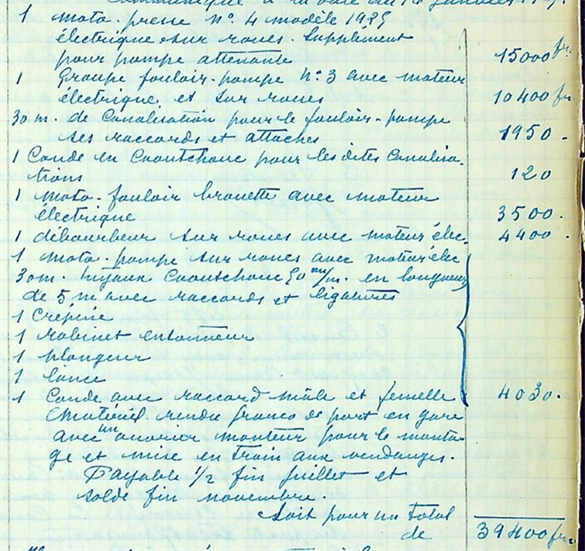 1 moto-presse N° 4 modèle 1925
électrique sur roues. Supplément
pour pompe attenante 15000 fr
1 Groupe fouloir-pompe N° 3 avec moteur
électrique et sur roues 10400 fr
30 m. de Canalisation pour le fouloir-pompe
ses raccords et attaches 1950.
1 Coude en Caoutchouc pour les dites Canalisa-
tions 120
1 moto-fouloir brouette avec moteur
électrique 3500.
1 débourbeur sur roues avec moteur élec. 4400.
1 moto-pompe sur roues avec moteur élec
30 m. tuyaux Caoutchouc 50 m/m. en longueurs
de 5 m avec raccords et ligatures
1 Crépine
1 robinet entonneur
1 plongeur
1 lance
1 Coude avec raccord mâle et femelle 4030.
Matériel rendu franco de port en gare
avec un ouvrier monteur pour le monta-
ge et mise en train aux vendanges.
Payable 1/2 fin juillet et
solde fin novembre.
Soit pour un total
de 39400 fr